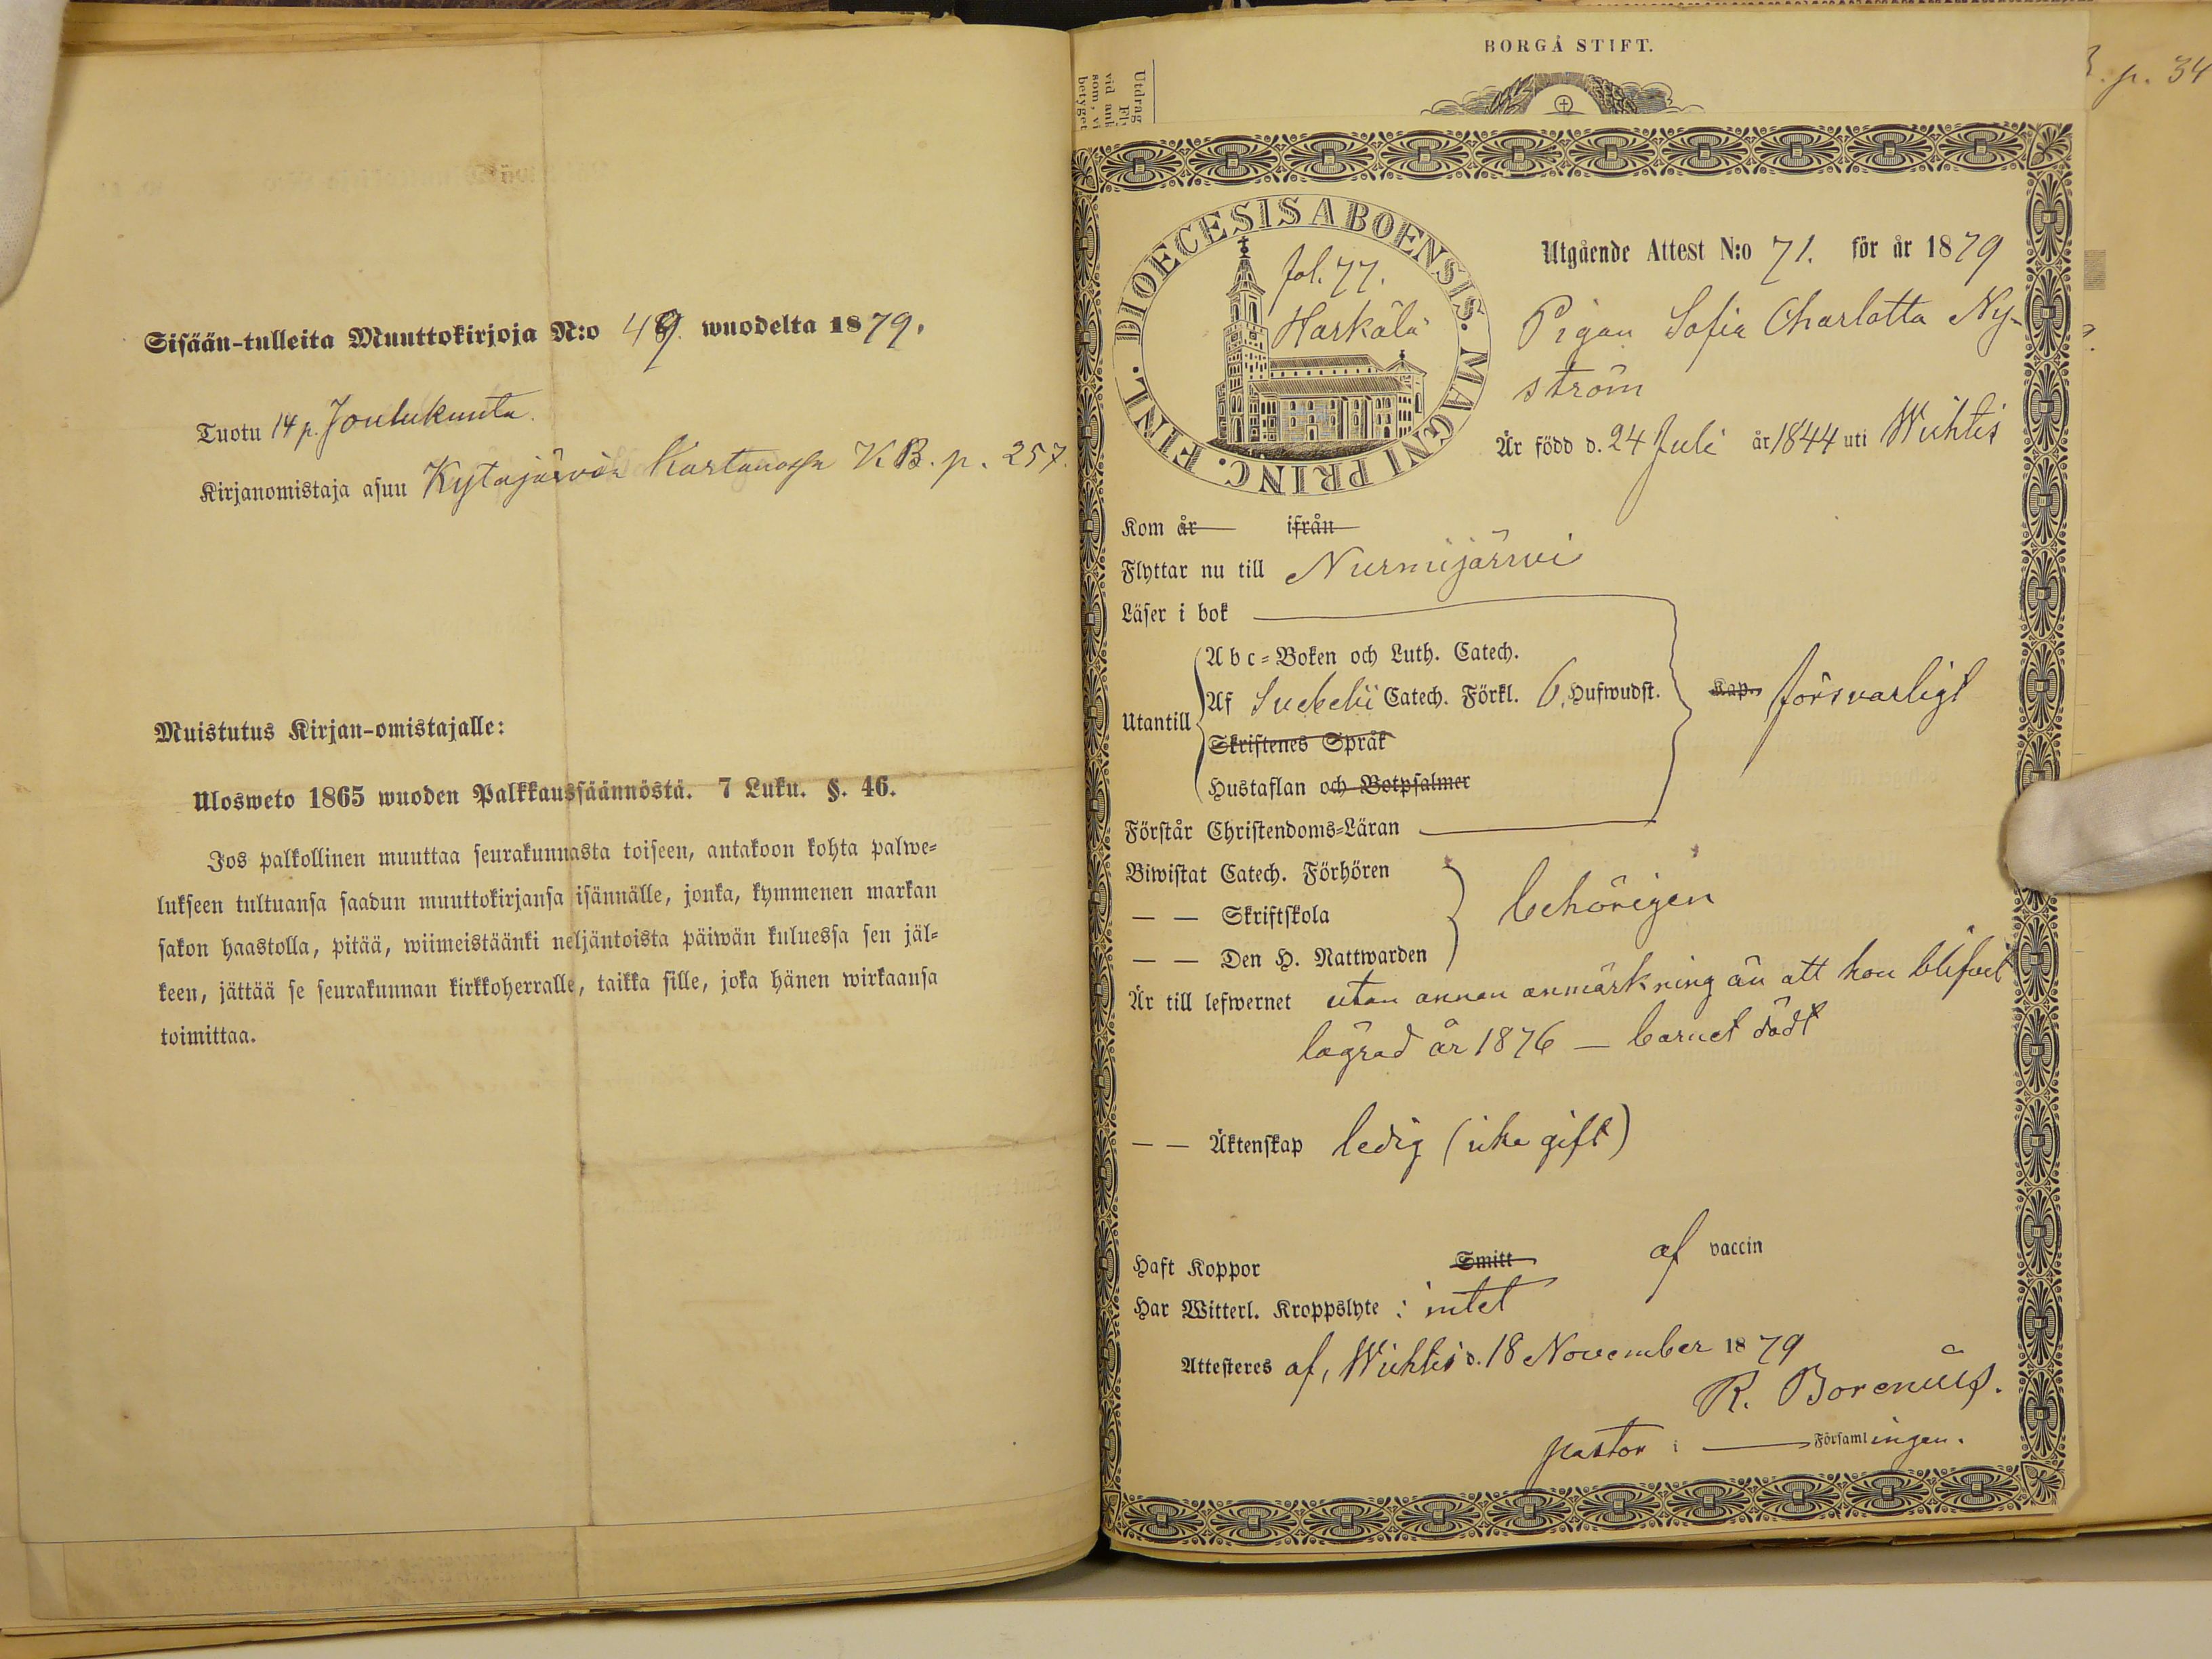 Sisään-tulleita Muuttokirjoja N:o 49. wuodelta 1879.
Tuotu 14 p. Joulukuuta.
Kirjanomistaja asuu Kytäjärvin Kartanossa K.B. p. 257.
Muistutus Kirjan-omistajalle:
Ulosweto 1865 wuoden Palkkaussäännöstä. 7 Luku. §. 46.
Jos palkollinen muuttaa seurakunnasta toiseen, antakoon kohta palwe-
lukseen tultuansa saadun muuttokirjansa isännälle, jonka, kymmenen markan
sakon haastolla, pitää, wiimeistäänki neljäntoista päiwän kuluessa sen jäl-
keen, jättää se seurakunnan kirkkoherralle, taikka sille, joka hänen wirkaansa
toimittaa.
BORGÅ STIFT.
Utdrag
vid ank
som, vi
betyget
p. 34
DIOECESIS ABOENSIS. MAGNI PRINC. FINL.
fol. 77.
Harkälä
Utgående Attest N:o 71. för år 1879
Pigan Sofia Charlotta Ny-
ström
Är född d. 24 Juli år 1844 uti Wichtis
Kom år ifrån
Flyttar nu till Nurmijärwi
Läser i bok
Abc-Boken och Luth. Catech.
Utantill
Af Svebelii Catech. Förkl. 6, Hufwudst. Kap. försvarligt
Skriftenes Språk
Hustaflan och Botpsalmer
Förstår Christendoms-Läran
Biwistat Catech. Förhören
— — Skriftskola behörigen
— — Den H. Nattwarden
Är till lefwernet utan annan anmärkning än att hon blifvit
lägrad år 1876 — barnet dödt
— — Äktenskap ledig (icke gift)
Haft Koppor Smitt af vaccin
Har Witterl. Kroppslyte : intet
Attesteres af, Wichtis d. 18 November 1879
R. Borenius.
pastor i — Församlingen.